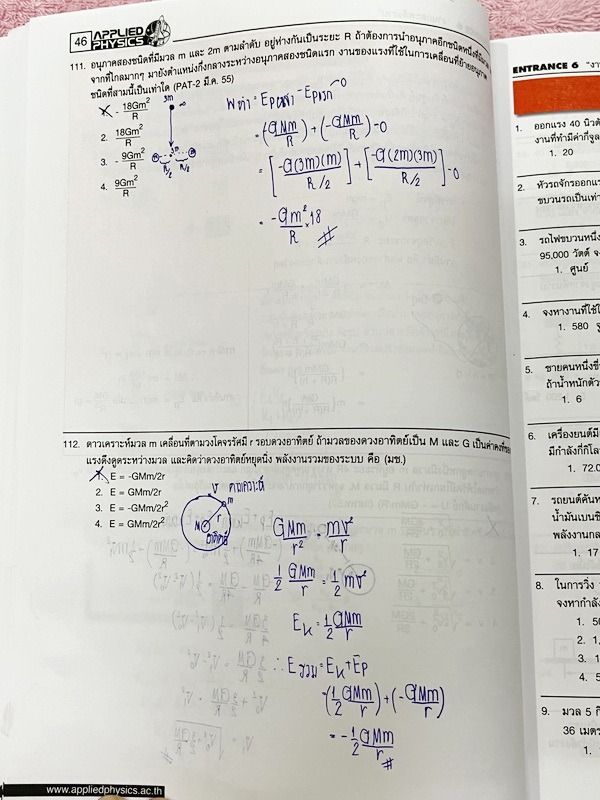 46 APPLIED PHYSICS
111. อนุภาคสองชนิดที่มีมวล m และ 2m ตามลำดับ อยู่ห่างกันเป็นระยะ R ถ้าต้องการนำอนุภาคอีกชนิดหนึ่งที่มีมวล
จากที่ไกลมากๆ มายังตำแหน่งกึ่งกลางระหว่างอนุภาคสองชนิดแรก งานของแรงที่ใช้ในการเคลื่อนที่ย้ายอนุภาค
ชนิดที่สามนี้เป็นเท่าใด (PAT-2 มี.ค. 55)
1. - 18Gm²/R
2. 18Gm²/R
3. - 9Gm²/R
4. 9Gm²/R
3m ∞
R/2 R/2
= (-GMm/R) + (-GMm/R) - 0
= [-G(3m)(m)/(R/2)] + [-G(2m)(3m)/(R/2)] - 0
= -Gm²/R × 18 #
112. ดาวเคราะห์มวล m เคลื่อนที่ตามวงโคจรรัศมี r รอบดวงอาทิตย์ ถ้ามวลของดวงอาทิตย์เป็น M และ G เป็นค่าคงที่ของ
แรงดึงดูดระหว่างมวล และคิดว่าดวงอาทิตย์หยุดนิ่ง พลังงานรวมของระบบ คือ (มช.)
1. E = -GMm/2r
2. E = GMm/2r
3. E = -GMm/2r²
4. E = GMm/2r²
v ดาวเคราะห์
m
r
M
อาทิตย์
GMm/r² = mv²/r
1/2 GMm/r = 1/2 mv²
Ek = 1/2 GMm/r
∴ Eรวม = Ek + Ep
= (1/2 GMm/r) + (-GMm/r)
= -1/2 GMm/r #
www.appliedphysics.ac.th
ENTRANCE 6
1. ออกแรง 40 นิวตั
งานที่ทำมีค่ากี่จูล
1. 20
2. หัวรถจักรออกแร
ขบวนรถเป็นเท่า
3. รถไฟขบวนหนึ่ง
95,000 วัตต์ จง
1. ศูนย์
4. จงหางานที่ใช้ใ
1. 580
5. ชายคนหนึ่งขี่
ถ้าน้ำหนักตัว
1. 6
6. เครื่องยนต์มี
มีค่ากี่กิโล
1. 72.0
7. รถยนต์คันห
น้ำมันเบนซิ
พลังงานกล
1. 17
8. ในการวิ่ง
จงหากำลัง
1. 50
2. 1,
3. 1
4. 5
9. มวล 5 กิ
36 เมตร
1.